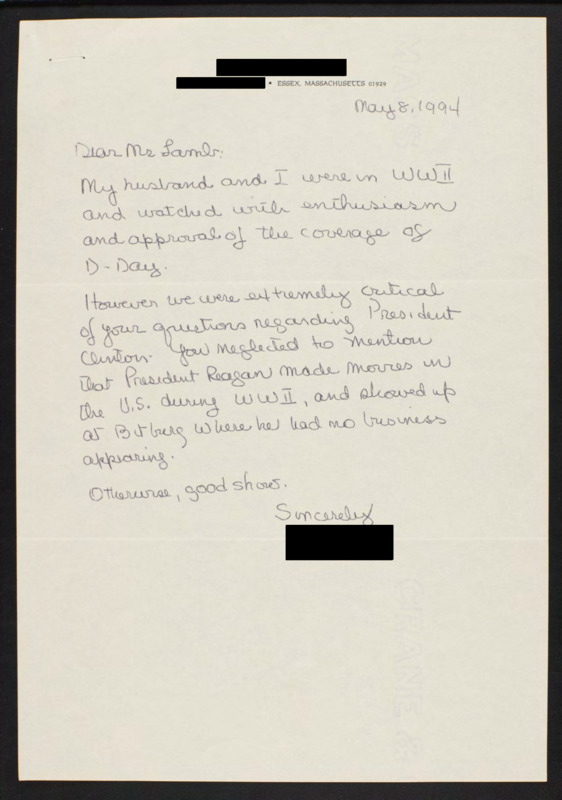 • ESSEX, MASSACHUSETTS 01929
May 8, 1994
Dear Mr Lamb:
My husband and I were in WWII
and watched with enthusiasm
and approval of the coverage of
D-Day.
However we were extremely critical
of your questions regarding President
Clinton. You neglected to mention
that President Reagan made movies in
the U.S. during WWII, and showed up
at Bitburg where he had no business
appearing.
Otherwise, good show.
Sincerely